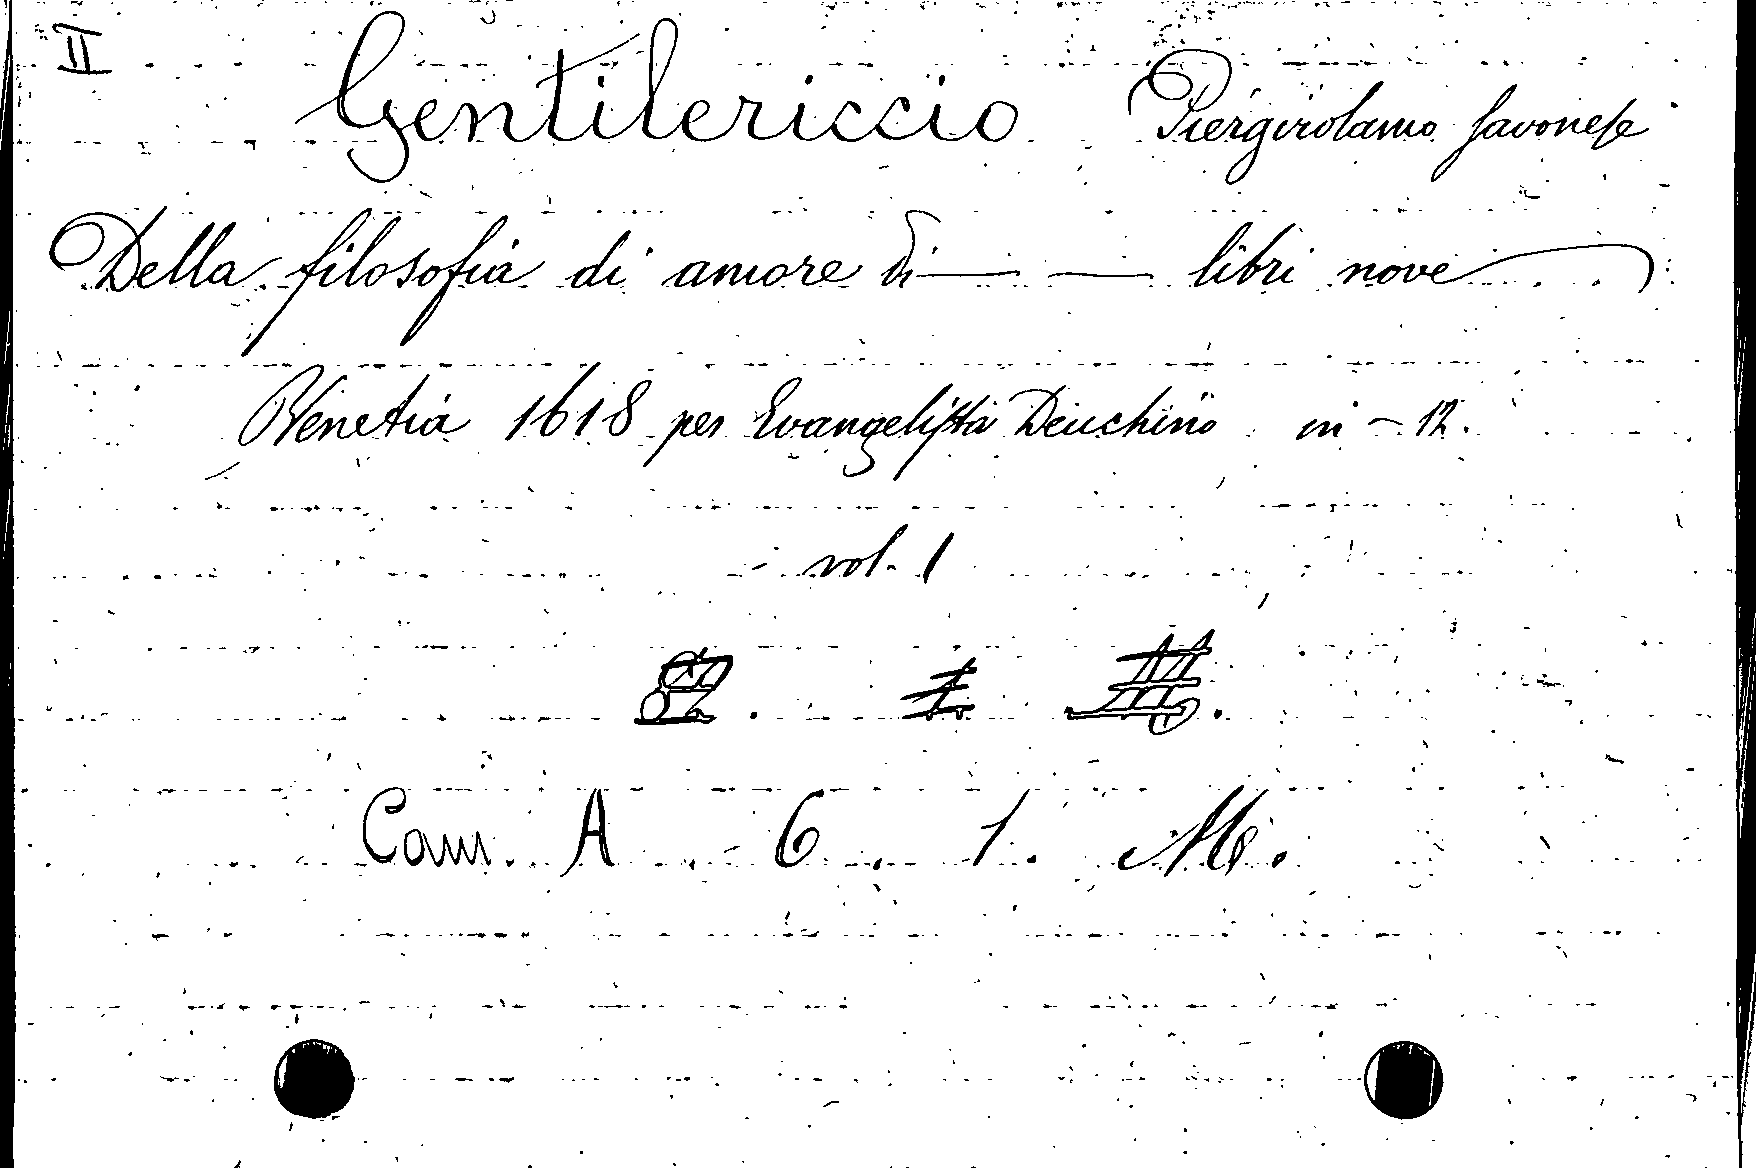 II
Gentilericcio Piergirolamo Savonese
Della filosofia di amore di — — libri nove
Venetia 1618 per Evangelista Deuchino in - 12.
vol. 1
Cam. A 6. 1.